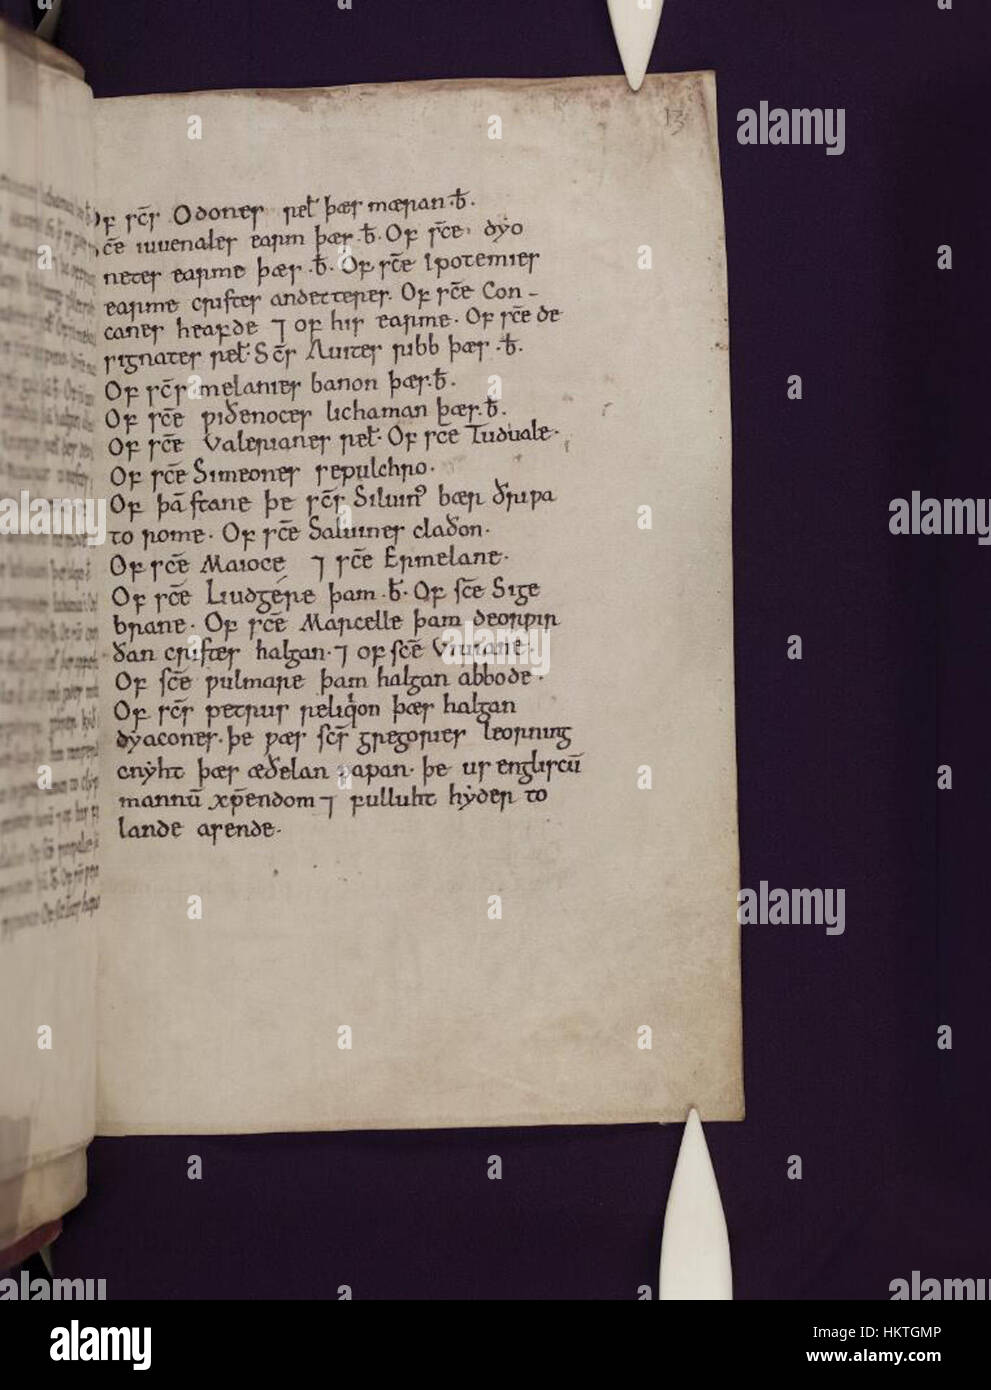 13
Of scēs Odones reł þæs mæran .ƀ.
sc̄e iuuenales earm þæs .ƀ. Of sc̄e dẏo
netes earme þæs .ƀ. Of sc̄e Ipotemies
earme cristes andetteres. Of sc̄e Con-
canes heafde ⁊ of his earme. Of sc̄e de
signates reł. Sc̄s Auites ribb þæs .ƀ.
Of sc̄s melanies banon þæs.ƀ.
Of sc̄e ƿiðenoces lichaman þæs.ƀ.
Of sc̄e Valerianes reł. Of sc̄e Tuduale.
Of sc̄e Simeones sepulchro.
Of þā stane þe sc̄s Siluinꝰ bær ðriƿa
to rome. Of sc̄e Saluines claðon.
Of sc̄e Maioce ⁊ sc̄e Ermelane.
Of sc̄e Liudgére þam .ƀ. Of sc̄e Sige
brane. Of sc̄e Marcelle þam deorƿir
ðan cristes halgan. ⁊ of sc̄e Viuiane.
Of sc̄e ƿulmare þam halgan abbode.
Of sc̄s petrus reliqͥon þæs halgan
dẏacones. þe ƿæs sc̄s gregories leorning
cnẏht þæs æðelan papan. þe us engliscū
mannū xp̄endom ⁊ fulluht hẏder to
lande asende.
alamy
a
Image ID: HKTGMP
www.alamy.com